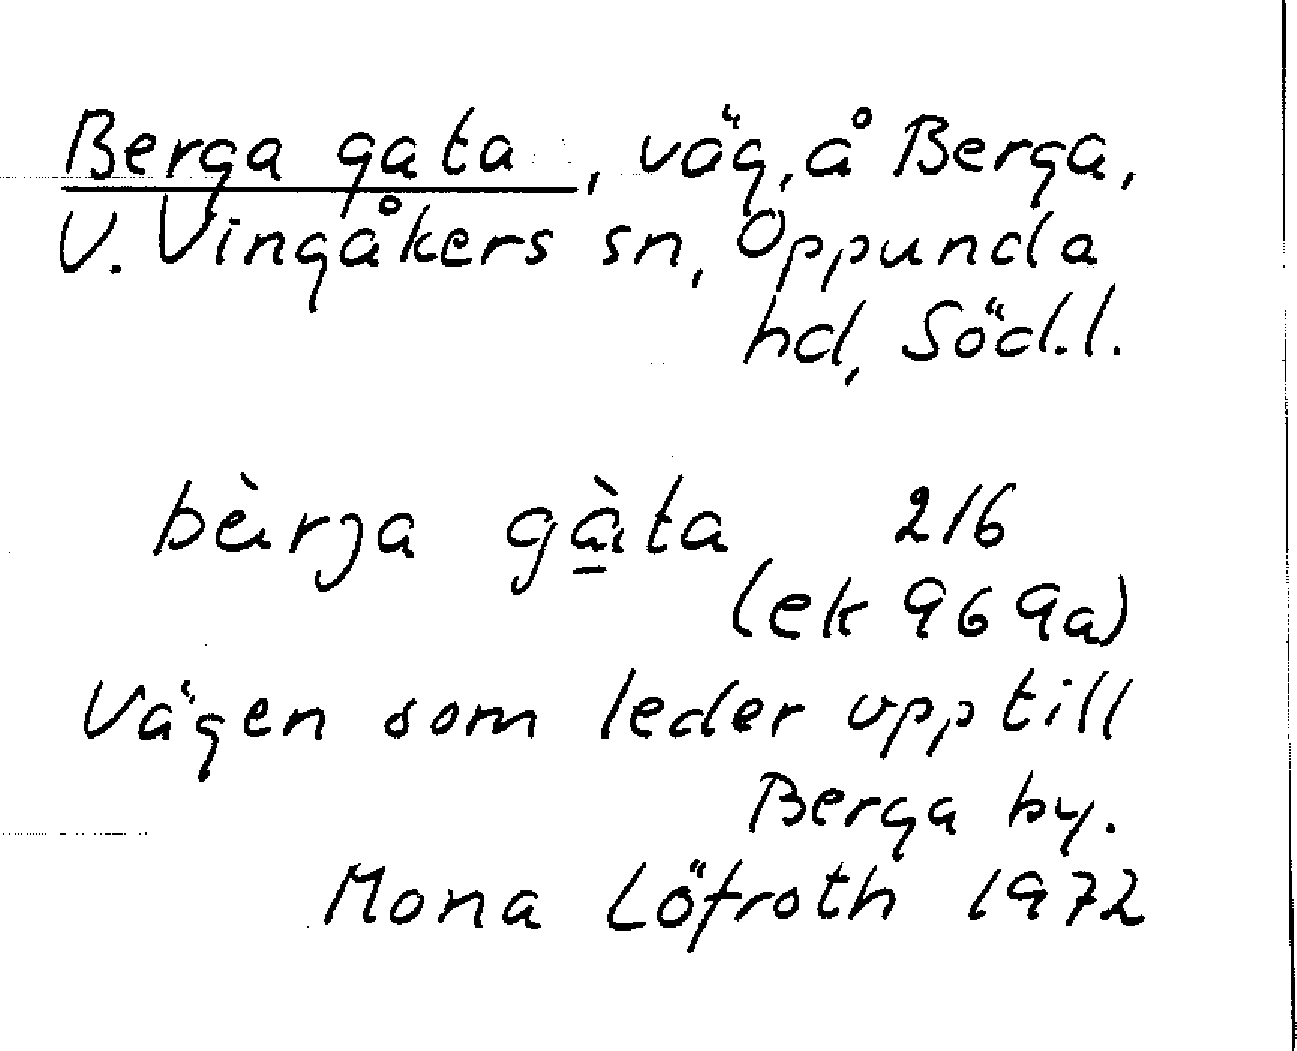 Berga gata, väg, å Berga,
V. Vingåkers sn, Oppunda
hd, Söd.l.
bèrja gàta 216
(ek 969a)
Vägen som leder upp till
Berga by.
Mona Löfroth 1972